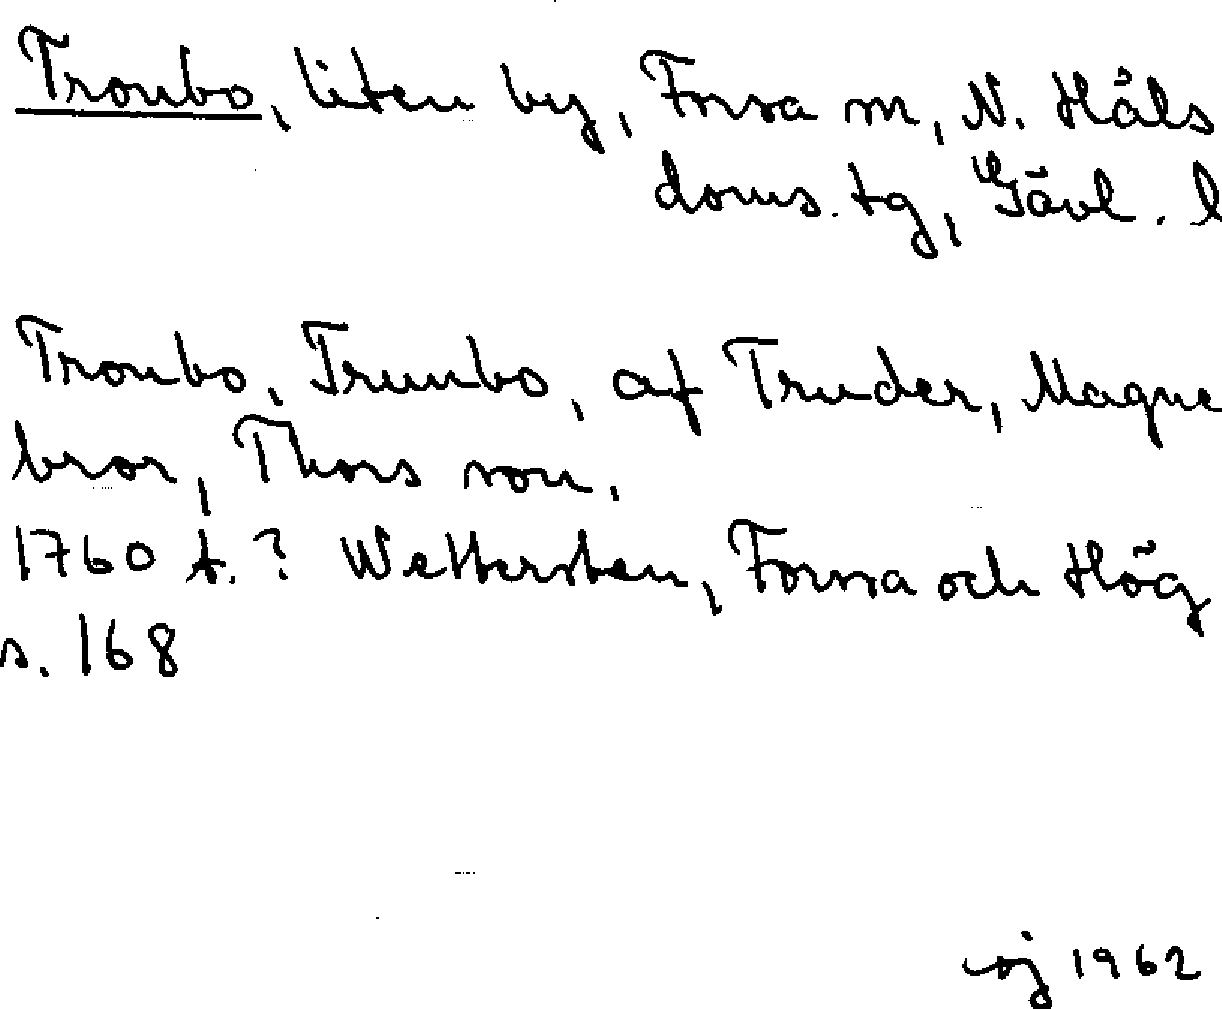 Tronbo, liten by, Forsa sn, N. Häls
doms. tg, Gävl. l
Tronbo, Trunbo, af Truder, Magne
bror, Thors son.
1760 t.? Wettersten, Forssa och Hög
s. 168
1962